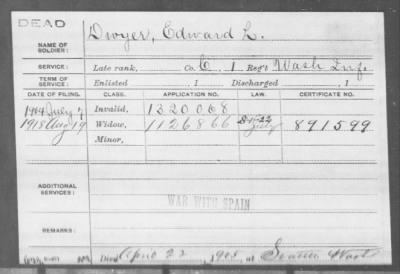 DEAD
NAME OF SOLDIER: Dwyer, Edward L.
SERVICE: Late rank, Co. C, 1 Reg't Wash Inf.
TERM OF SERVICE: Enlisted , 1 Discharged , 1
DATE OF FILING. CLASS. APPLICATION NO. LAW. CERTIFICATE NO.
1904 July 7 Invalid, 1320068
1918 Aug 19 Widow, 1126866 891599
Minor,
ADDITIONAL SERVICES:
WAR WITH SPAIN
REMARKS:
Died April 22 at Seattle Wash